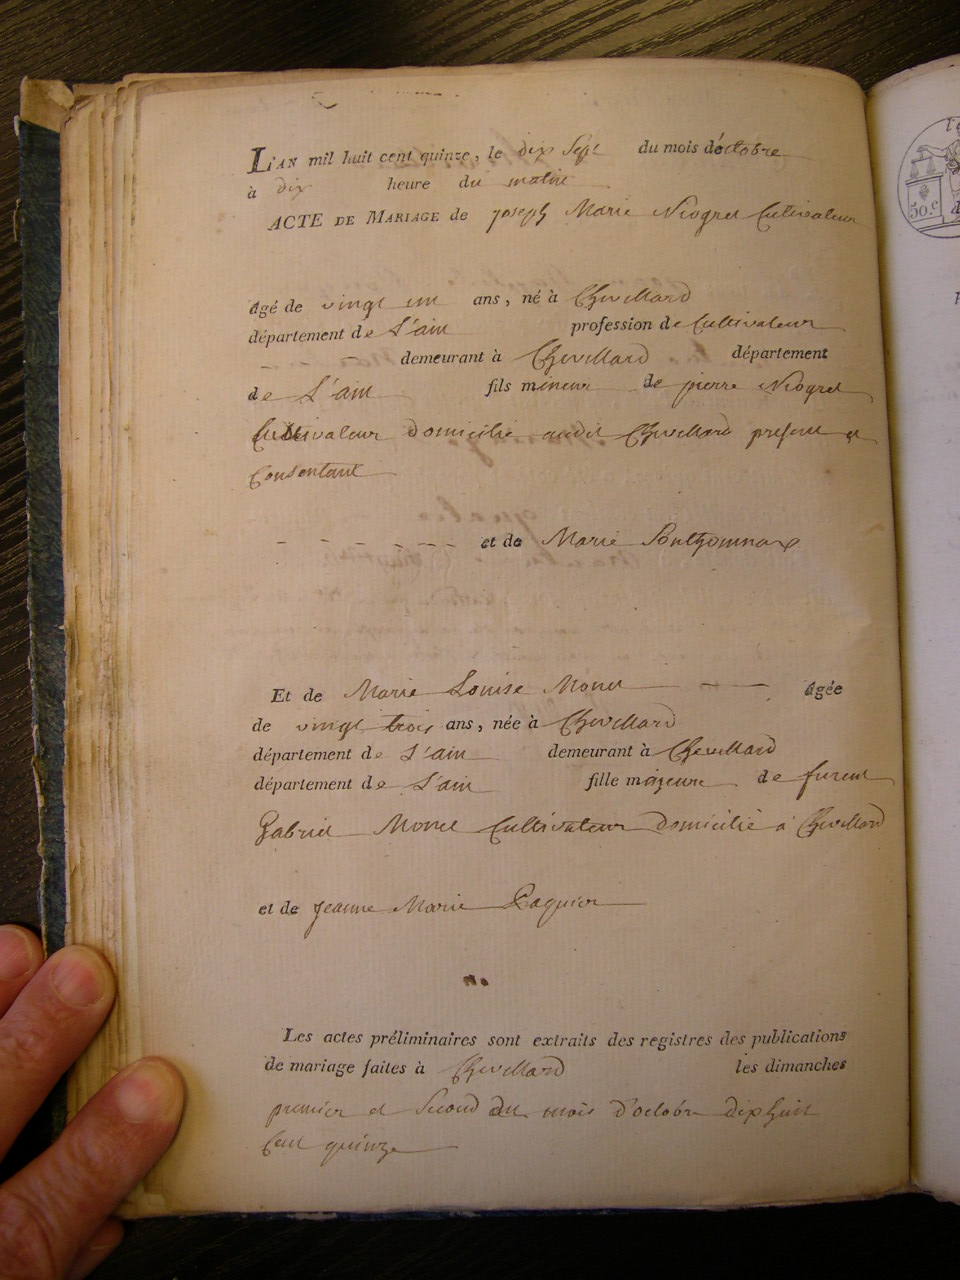 L'AN mil huit cent quinze, le dix Sept du mois d'octobre
à dix heure du matin
ACTE DE MARIAGE de joseph Marie Niogret Cultivateur
âgé de vingt un ans, né à Chevillard
département de L'ain profession de Cultivateur
demeurant à Chevillard département
de L'ain fils mineur de pierre Niogret
Cultivateur domicilié audit Chevillard present et
Consentant
et de Marie Ponthonnax
Et de Marie Louise Monet âgée
de vingt trois ans, née à Chevillard
département de L'ain demeurant à Chevillard
département de L'ain fille majeure de fureut
Gabriel Monet Cultivateur domicilié à Chevillard
et de jeanne Marie Paquier
Les actes préliminaires sont extraits des registres des publications
de mariage faites à Chevillard les dimanches
premier et Second du mois d'octobre dixhuit
Cent quinze
50.c